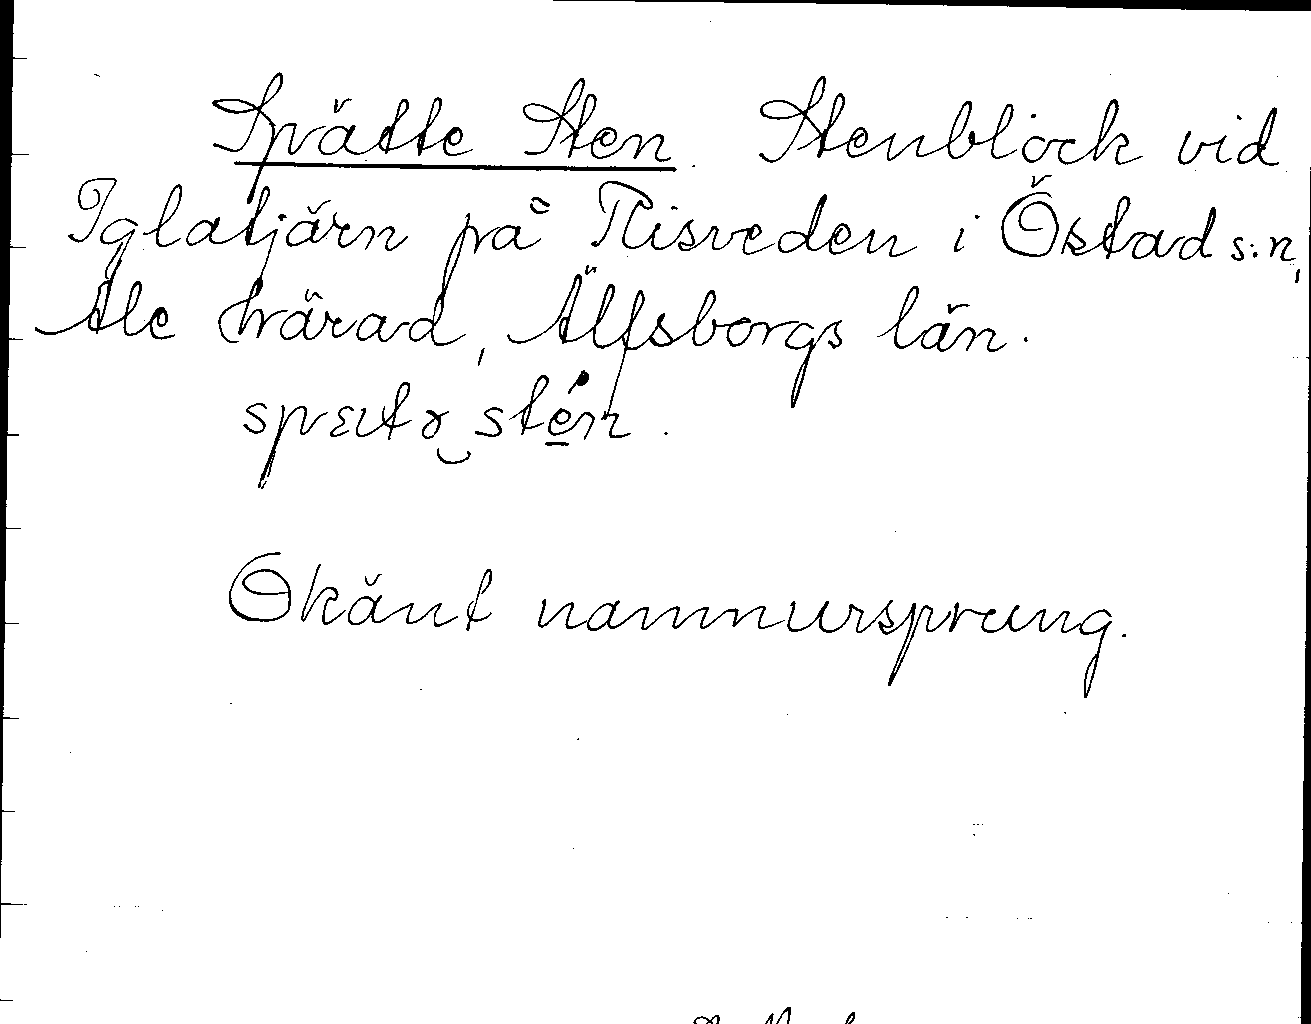 Spätte Sten. Stenblock vid
Iglatjärn på Risveden i Östad s:n,
Ale härad, Älfsborgs län.
spætɤ‿sté̲n.
Okänt namnursprung.